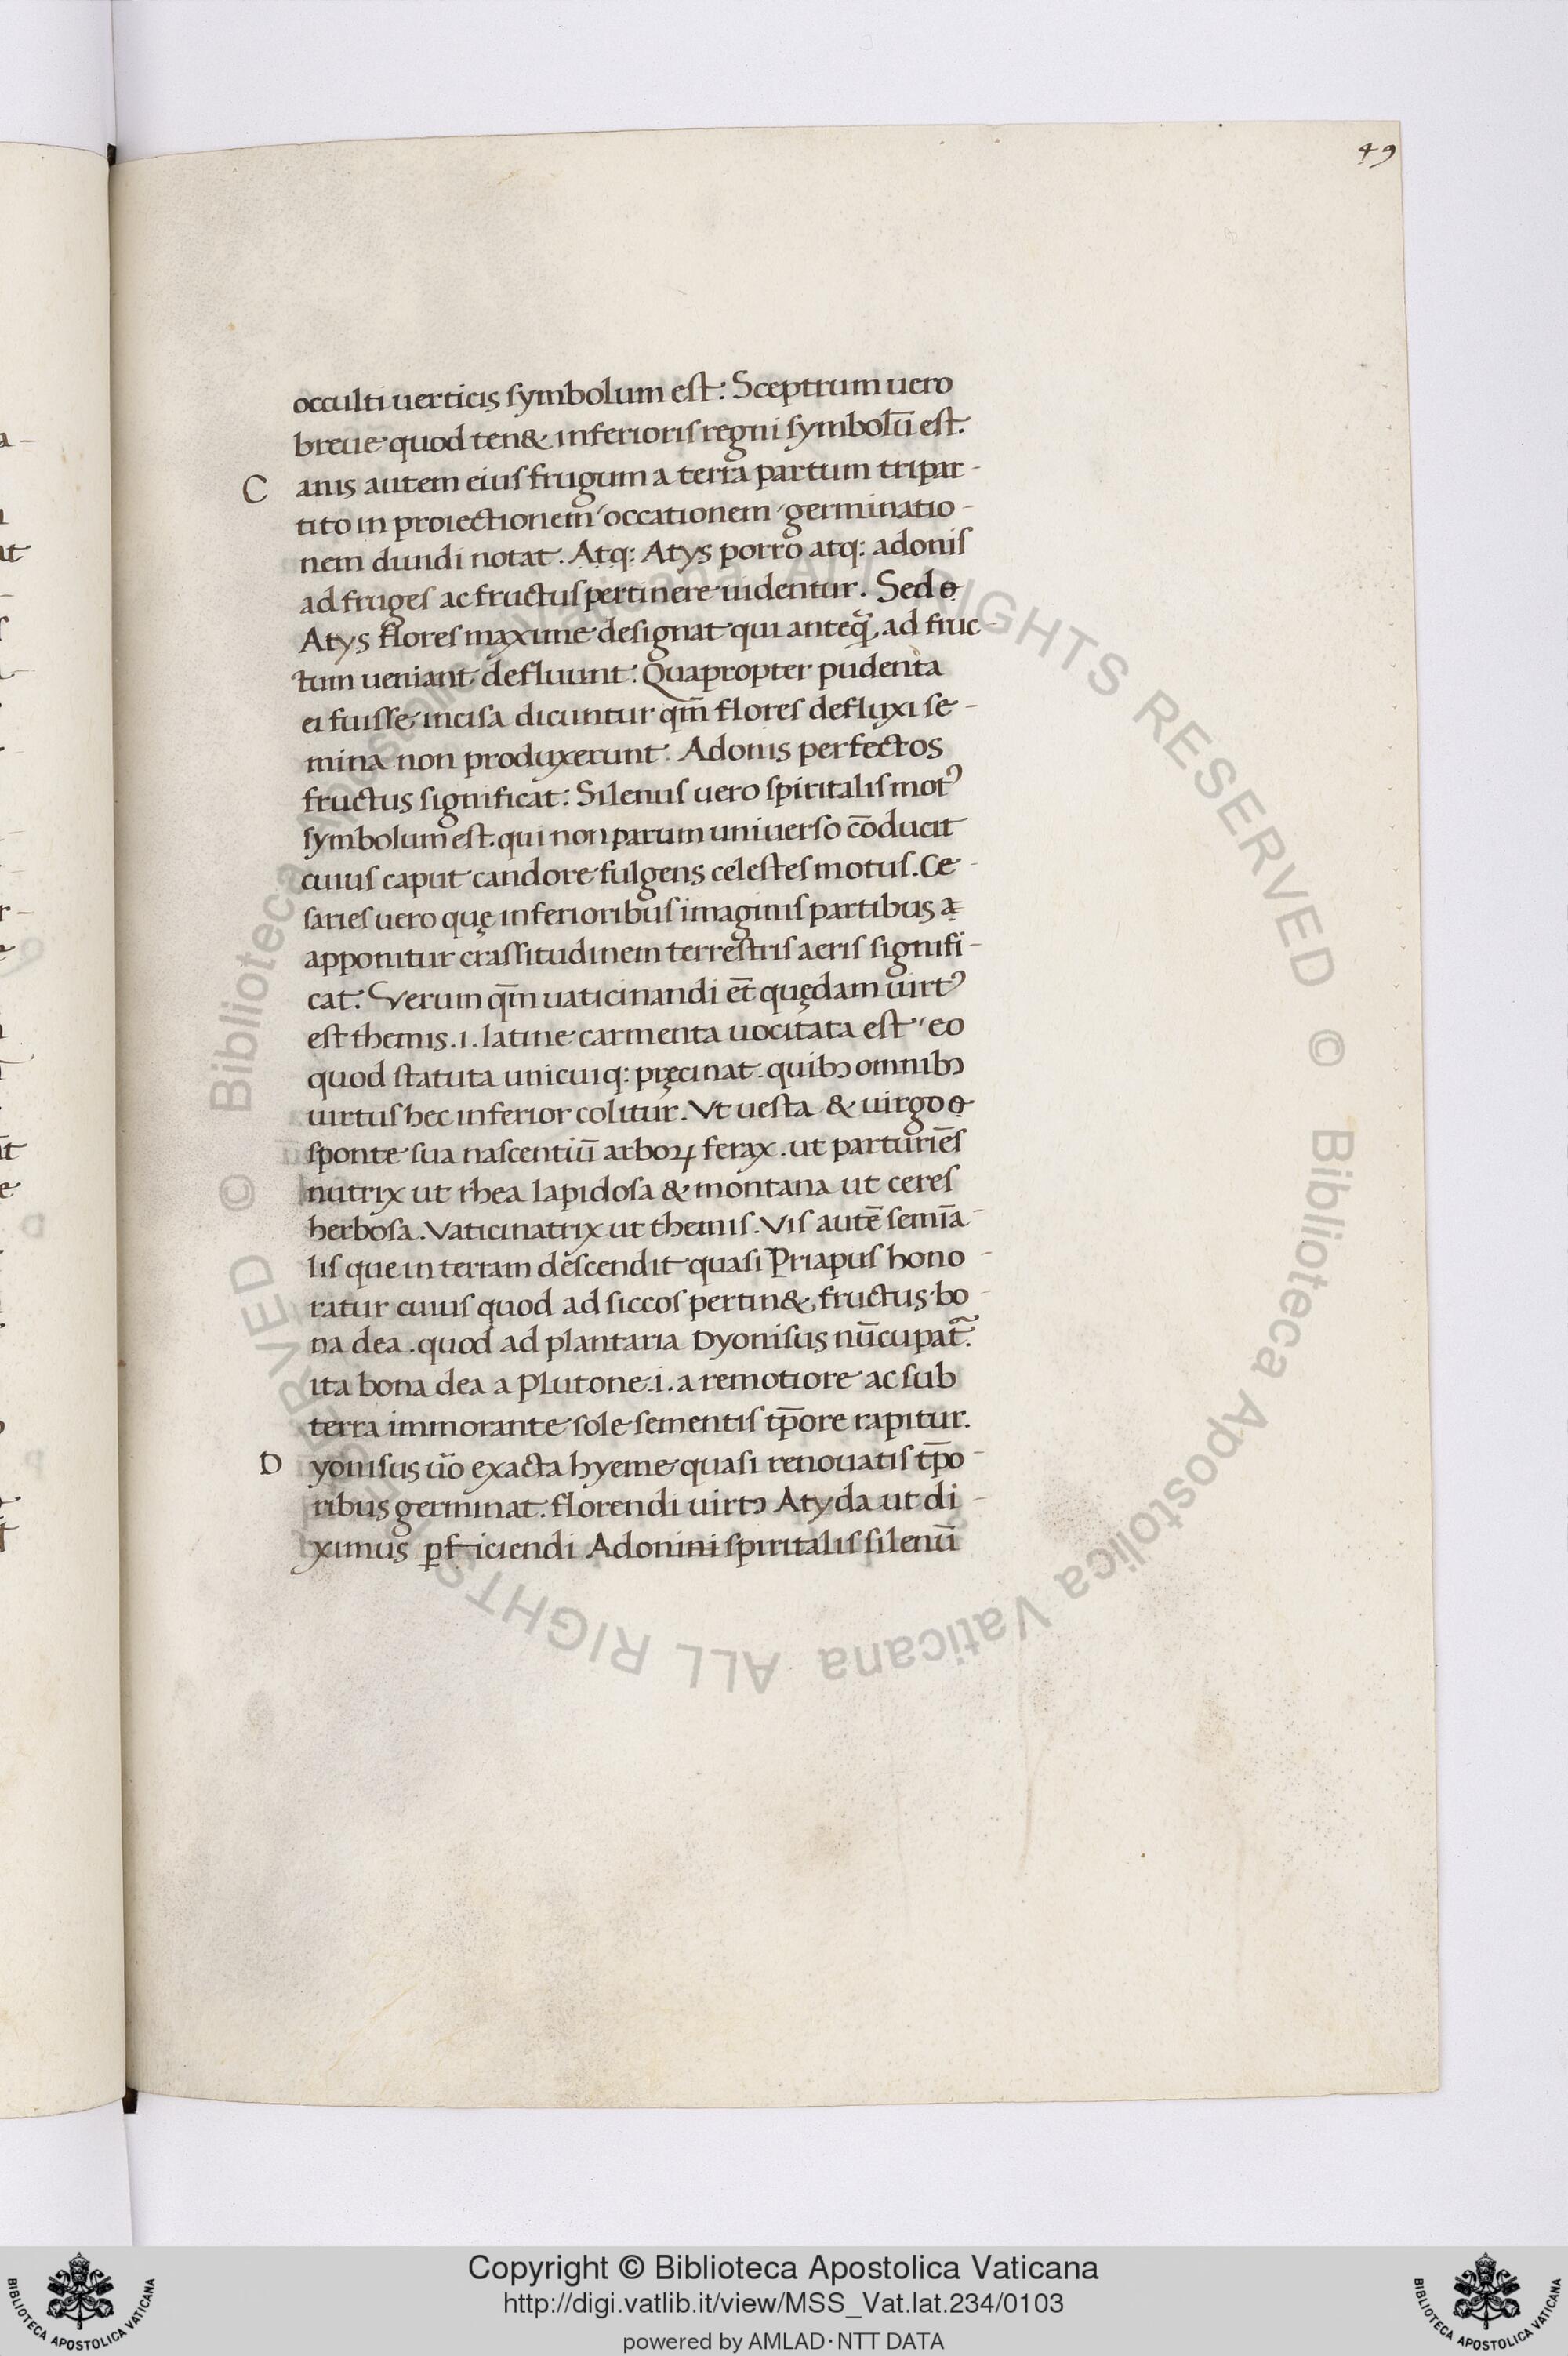 49
occulti uerticis symbolum est. Sceptrum uero
breue quod ten& inferioris regni symbolū est.
C anis autem eius frugum a terra partum tripar-
tito in proiectionem occationem germinatio-
nem diuidi notat. Atq: Atys porro atq: adonis
ad fruges ac fructus pertinere uidentur. Sed
Atys flores maxime designat qui anteq̃ ad fruc-
tum ueniant defluunt. Quapropter pudenta
ei fuisse incisa dicuntur qm̄ flores defluxi se-
mina non produxerunt. Adonis perfectos
fructus significat. Silenus uero spiritalis motꝰ
symbolum est. qui non parum uniuerso cōducit
cuius caput candore fulgens celestes motus. Ce-
saries uero quę inferioribus imaginis partibus
apponitur crassitudinem terrestris aeris signifi-
cat. Verum qm̄ uaticinandi et̄ quędam uirtꝰ
est themis .i. latine carmenta uocitata est eo
quod statuta unicuiq: pręcinat. quibꝫ omnibꝫ
uirtus hec inferior colitur. Vt uesta & uirgo
sponte sua nascentiū arboꝝ ferax. ut parturiēs
nutrix ut rhea lapidosa & montana ut ceres
herbosa. Vaticinatrix ut themis. Vis autē semīa-
lis que in terram descendit quasi Priapus hono-
ratur cuius quod ad siccos pertin& fructus bo-
na dea. quod ad plantaria Dyonisus nūcupat᷑.
ita bona dea a Plutone .i. a remotiore ac sub
terra immorante sole sementis tp̄ore rapitur.
D yonisus ūo exacta hyeme quasi renouatis tp̄o-
ribus germinat. florendi uirtꝰ Atyda ut di-
ximus ꝑficiendi Adonini spiritalis silenū
© Biblioteca Apostolica Vaticana ALL RIGHTS RESERVED © Biblioteca Apostolica Vaticana ALL RIGHTS RESERVED
Copyright © Biblioteca Apostolica Vaticana
http://digi.vatlib.it/view/MSS_Vat.lat.234/0103
powered by AMLAD·NTT DATA
BIBLIOTECA APOSTOLICA VATICANA
BIBLIOTECA APOSTOLICA VATICANA